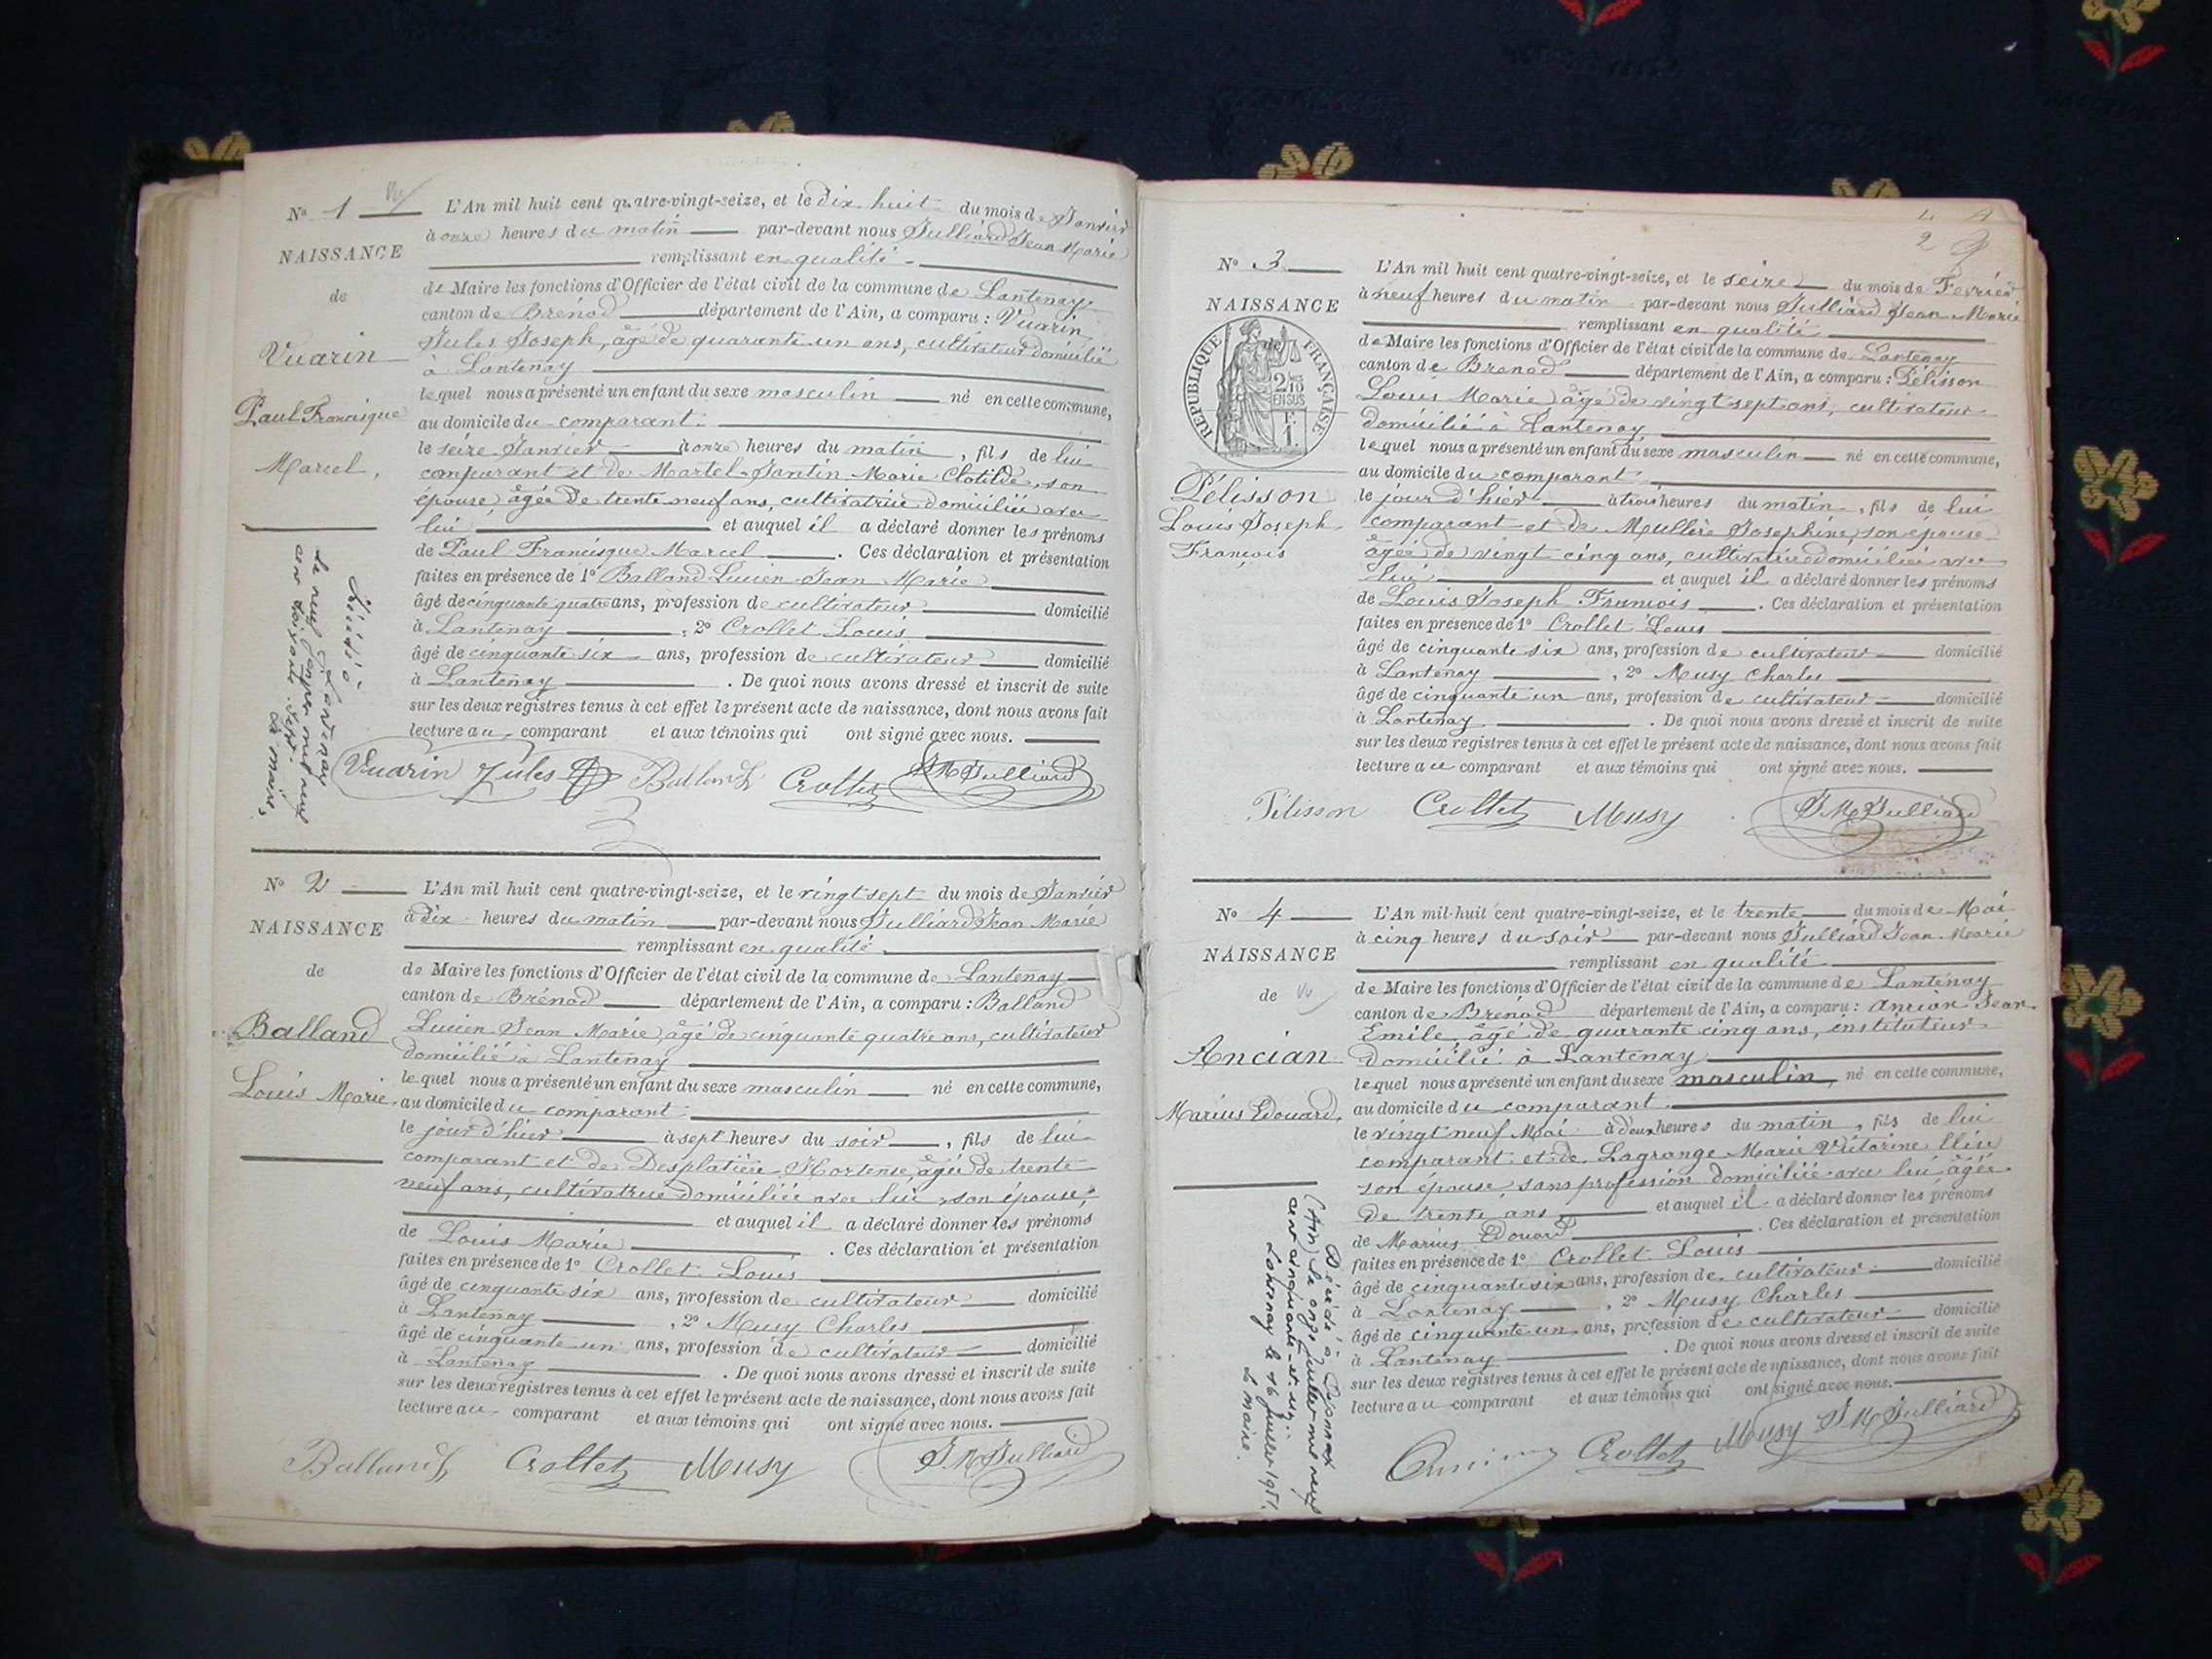 N° 1
NAISSANCE
de
Vuarin
Paul Francisque
Marcel.
L'An mil huit cent quatre-vingt-seize, et le dix-huit du mois de Janvier
à onze heures du matin par-devant nous Julliard Jean Marie
remplissant en qualité
de Maire les fonctions d'Officier de l'état civil de la commune de Lantenay
canton de Brénod département de l'Ain, a comparu : Vuarin
Jules Joseph, âgé de quarante-un ans, cultivateur domicilié
à Lantenay
lequel nous a présenté un enfant du sexe masculin né en cette commune,
au domicile du comparant.
le seize Janvier à onze heures du matin, fils de lui
comparant et de Martel-Jantin Marie Clotilde, son
épouse, âgée de trente neuf ans, cultivatrice domiciliée avec
lui et auquel il a déclaré donner les prénoms
de Paul Francisque Marcel. Ces déclaration et présentation
faites en présence de 1° Balland Lucien Jean Marie
âgé de cinquante quatre ans, profession de cultivateur domicilié
à Lantenay, 2° Crollet Louis
âgé de cinquante six ans, profession de cultivateur domicilié
à Lantenay. De quoi nous avons dressé et inscrit de suite
sur les deux registres tenus à cet effet le présent acte de naissance, dont nous avons fait
lecture au comparant et aux témoins qui ont signé avec nous.
Vuarin Jules Balland L Crollet J M Julliard
Décédé à Lantenay
le neuf janvier mil neuf
cent soixante sept.
Le maire,
N° 2
NAISSANCE
de
Balland
Louis Marie
L'An mil huit cent quatre-vingt-seize, et le vingt sept du mois de Janvier
à dix heures du matin par-devant nous Julliard Jean Marie
remplissant en qualité
de Maire les fonctions d'Officier de l'état civil de la commune de Lantenay
canton de Brénod département de l'Ain, a comparu : Balland
Lucien Jean Marie, âgé de cinquante quatre ans, cultivateur
domicilié à Lantenay
lequel nous a présenté un enfant du sexe masculin né en cette commune,
au domicile du comparant
le jour d'hier à sept heures du soir, fils de lui
comparant et de Desplatière Hortense, âgée de trente
neuf ans, cultivatrice domiciliée avec lui, son épouse
et auquel il a déclaré donner les prénoms
de Louis Marie. Ces déclaration et présentation
faites en présence de 1° Crollet Louis
âgé de cinquante six ans, profession de cultivateur domicilié
à Lantenay, 2° Musy Charles
âgé de cinquante un ans, profession de cultivateur domicilié
à Lantenay. De quoi nous avons dressé et inscrit de suite
sur les deux registres tenus à cet effet le présent acte de naissance, dont nous avons fait
lecture au comparant et aux témoins qui ont signé avec nous.
Balland L Crollet Musy J M Julliard
2
N° 3
NAISSANCE
de
RÉPUBLIQUE FRANÇAISE
2/10
EN SUS
F.
1.
Pélisson
Louis Joseph
François
L'An mil huit cent quatre-vingt-seize, et le seize du mois de Fevrier
à neuf heures du matin par-devant nous Julliard Jean Marie
remplissant en qualité
de Maire les fonctions d'Officier de l'état civil de la commune de Lantenay
canton de Brenod département de l'Ain, a comparu : Pélisson
Louis Marie âgé de vingt sept ans, cultivateur
domicilié à Lantenay
lequel nous a présenté un enfant du sexe masculin né en cette commune,
au domicile du comparant
le jour d'hier à trois heures du matin, fils de lui
comparant et de Mullière Josephine, son épouse
âgée de vingt cinq ans, cultivatrice domiciliée avec
lui et auquel il a déclaré donner les prénoms
de Louis Joseph François. Ces déclaration et présentation
faites en présence de 1° Crollet Louis
âgé de cinquante six ans, profession de cultivateur domicilié
à Lantenay, 2° Musy Charles
âgé de cinquante un ans, profession de cultivateur domicilié
à Lantenay. De quoi nous avons dressé et inscrit de suite
sur les deux registres tenus à cet effet le présent acte de naissance, dont nous avons fait
lecture au comparant et aux témoins qui ont signé avec nous.
Pélisson Crollet Musy J M Julliard
N° 4
NAISSANCE
de
Ancian
Marius Edouard,
L'An mil huit cent quatre-vingt-seize, et le trente du mois de Mai
à cinq heures du soir par-devant nous Julliard Jean Marie
remplissant en qualité
de Maire les fonctions d'Officier de l'état civil de la commune de Lantenay
canton de Brénod département de l'Ain, a comparu : Ancian Jean
Emile, âgé de quarante cinq ans, instituteur
domicilié à Lantenay
lequel nous a présenté un enfant du sexe masculin, né en cette commune,
au domicile du comparant.
le vingt neuf Mai à deux heures du matin, fils de lui
comparant et de Lagrange Marie Victorine
son épouse, sans profession domiciliée avec lui âgée
de trente ans et auquel il a déclaré donner les prénoms
de Marius Edouard. Ces déclaration et présentation
faites en présence de 1° Crollet Louis
âgé de cinquante six ans, profession de cultivateur domicilié
à Lantenay, 2° Musy Charles
âgé de cinquante un ans, profession de cultivateur domicilié
à Lantenay. De quoi nous avons dressé et inscrit de suite
sur les deux registres tenus à cet effet le présent acte de naissance, dont nous avons fait
lecture au comparant et aux témoins qui ont signé avec nous.
Ancian Crollet Musy J M Julliard
Décédé à Oyonnax
(Ain) le onze juillet mil neuf
cent cinquante-et-un.
Lantenay le 16 juillet 1951.
Le maire.